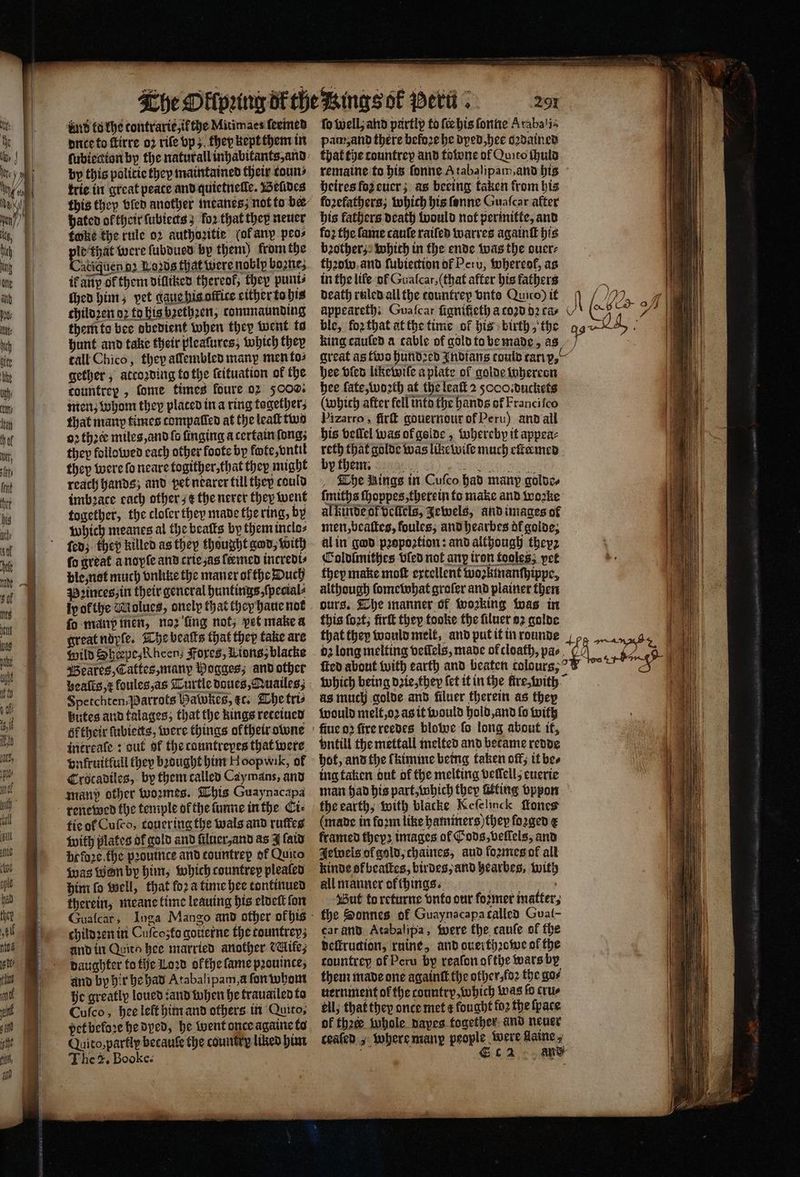 The Ofspring of the Kings of Peru . 291
and to the contrarie, if the Mitimaes seemed
once to stirre or rise vp ; they kept them in
subiection by the naturall inhabitants, and
by this policie they maintained their coun-
trie in great peace and quietnesse. Besides
this they vsed another meanes ; not to bee
hated of their subiects ; for that they neuer
tooke the rule or authoritie (of any peo-
ple that were subdued by them) from the
Casiquen or Lords that were nobly borne ;
if any of them disliked thereof, they puni-
shed him , yet gaue his office either to his
children or to his brethzen, commaunding
them to bee obedient when they went to
hunt and take their pleasures, which they
call Chico , they assembled many men to-
gether , according to the scituation of the
countrey , some times foure or 5000.
men, whom they placed in a ring together,
that many times compassed at the least two
or three miles, and so singing a certain song ;
they followed each other foote by foote, vntil
they were so neare togither, that they might
reach hands ; and yet nearer till they could
imbrace each other ; & the nerer they went
together, the closer they made the ring, by
which meanes al the beasts by them inclo-
sed, they killed as they thought good, with
so great a noyse and crie, as seemed incredi-
ble, not much vnlike the maner of the Duch
Princes, in their general huntings, special-
ly of the Wolues, onely that they haue not
so many men, nor sing not, yet make a
great noyse. The beasts that they take are
wild Sheepe, Rheen, Foxes, Lions, blacke
Beares, Cattes, many Hogges, and other
beasts, & foules, as Turtle doues, Quailes,
Spetchten, Parrots Hawkes, &c. The tri-
butes and talages, that the kings receiued
of their subiects, were things of their owne
increase : out of the countreyes that were
vnfruitfull they brought him Hoopwik, of
Crocadiles, by them called Caymans, and
many other wormes. This Guaynacapa
renewed the temple of the sunne in the Ci-
tie of Cusco, couering the wals and ruffes
with plates of gold and siluer, and as I said
before the prouince and countrey of Quito
was won by him, which countrey pleased
him so well, that for a time hee continued
therein, meane time leauing his eldest son
Guascar, Inga Mango and other of his
children in Cusco, to gouerne the countrey,
and in Quito hee married another Wife,
daughter to the Lord of the same prouince,
and by hir he had Atabalipam, a son whom
he greatly loued : and when he trauailed to
Cusco, hee left him and others in Quito,
yet before he dyed, he went once againe to
Quito, partly because the country liked him
The 2. Booke.
so well, and partly to see his sonne Atabali-
pam, and there before he dyed, hee ordained
that the countrey and towne of Quito shuld
remaine to his sonne Atabalipam, and his
heires for euer ; as beeing taken from his
forefathers, which his sonne Guascar after
his fathers death would not permitte, and
for the same cause raised warres against his
brother, which in the ende was the ouer-
throw and subiection of Peru, whereof, as
in the life of Guascar, (that after his fathers
death ruled all the countrey vnto Quito) it
appeareth. Guascar signifieth a cord or ca-
ble, for that at the time of his birth , the
king caused a cable of gold to be made , as
great as two hundred Indians could cary,
hee vsed likewise a plate of golde whereon
hee sate, worth at the least 25000. duckets
(which after fell into the hands of Francisco
Pizarro , first gouernour of Peru) and all
his vessel was of golde , whereby it appea-
reth that golde was likewise much esteemed
by them.
The Kings in Cusco had many golde-
smiths shoppes, therein to make and worke
al kinde of vessels, Iewels, and images of
men, beastes, foules, and hearbes of golde,
al in good proportion : and although theyr
Goldsmithes vsed not any iron tooles, yet
they make most excellent workmanshippe,
although somewhat groser and plainer then
ours. The manner of working was in
this sort, first they tooke the siluer or golde
that they would melt, and put it in rounde
or long melting vessels, made of cloath, pa-
sted about with earth and beaten colours,
which being drie, they set it in the fire, with
as much golde and siluer therein as they
would melt, or as it would hold, and so with
fiue or fire reedes blowe so long about it,
vntill the mettall melted and became redde
hot, and the skimme being taken off, it be-
ing taken out of the melting vessell, euerie
man had his part, which they sitting vppon
the earth, with blacke Keselinck stones
(made in form like hammers) they forged &
framed theyr images of Gods, vessels, and
Iewels of gold, chaines, and formes of all
kinde of beastes, birdes, and hearbes, with
all manner of things.
But to returne vnto our former matter,
the Sonnes of Guaynacapa called Guas-
car and Atabalipa, were the cause of the
destruction, ruine, and ouerthrowe of the
countrey of Peru by reason of the wars by
them made one against the other, for the go-
uernment of the country, which was so cru-
ell, that they once met & fought for the space
of three whole dayes together and neuer
ceased , where many people were slaine ,
Cc2 and